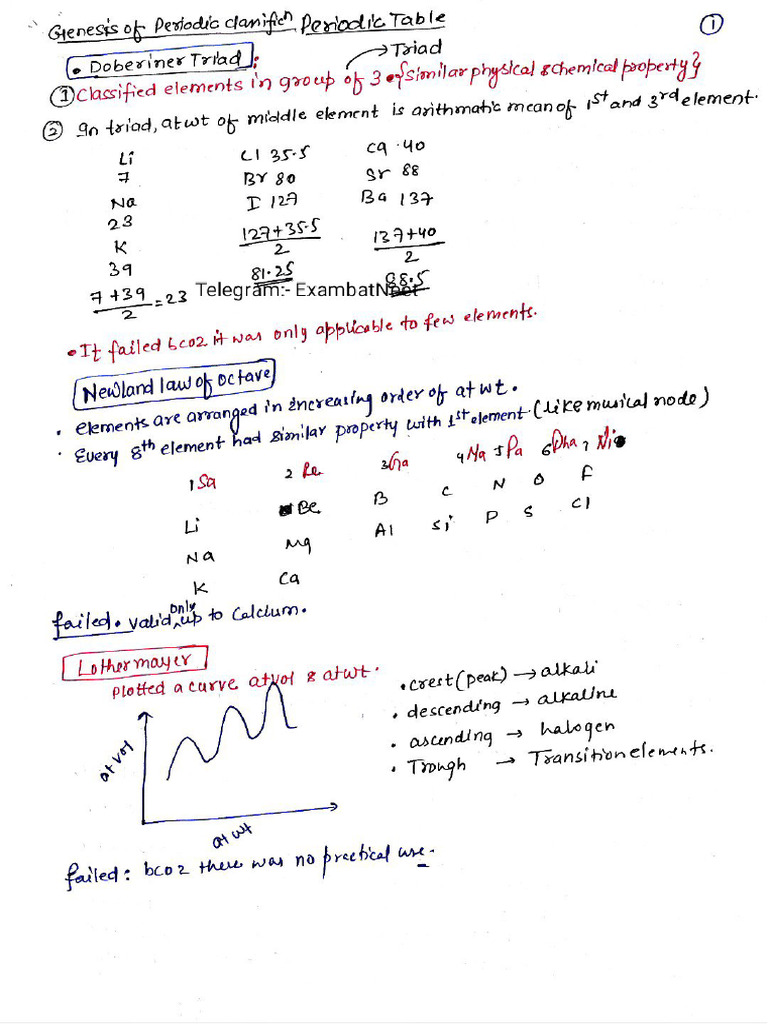 Genesis of Periodic clanificn Periodic Table
1
• Doberiner Triad :
→ Triad
① Classified elements in group of 3 • {similar physical & chemical property}
② In triad, at wt of middle element is arithmatic mean of 1st and 3rd element.
Li Cl 35.5 Ca 40
7 Br 80 Sr 88
Na I 127 Ba 137
23 127+35.5 137+40
K 2 2
39 81.25 88.5
7+39 = 23
2
Telegram:- ExambatNeet
• It failed bcoz it was only applicable to few elements.
Newland law of octave
• elements are arranged in increasing order of at wt.
• Every 8th element had similar property with 1st element (like musical node)
1 Sa 2 Re 3 Ga 4 Ma 5 Pa 6 Dha 7 Ni
Li Be B C N O F
Na Mg Al Si P S Cl
K Ca
failed • valid only up to Calcium.
Lother mayer
plotted a curve at vol & at wt.
• crest (peak) → alkali
• descending → alkaline
• ascending → halogen
• Trough → Transition elements.
at vol
at wt
failed: bcoz there was no practical use.